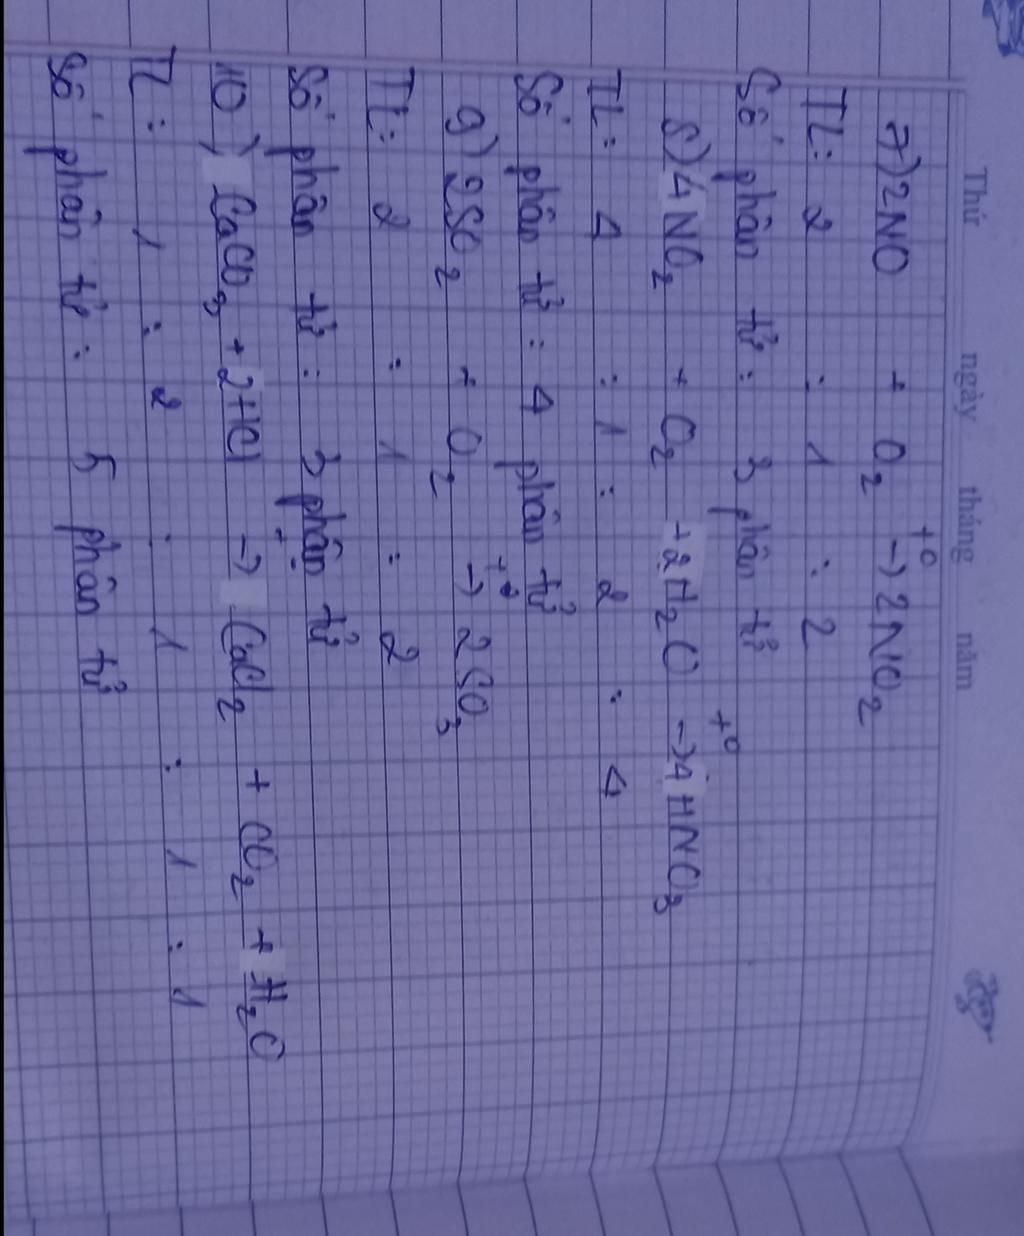 Thứ ngày tháng năm
7) 2NO + O₂ -t°-> 2NO₂
TL: 2 : 1 : 2
Số phân tử: 3 phân tử
8) 4NO₂ + O₂ + 2H₂O -t°-> 4HNO₃
TL: 4 : 1 : 2 : 4
Số phân tử: 4 phân tử
9) 2SO₂ + O₂ -t°-> 2SO₃
TL: 2 : 1 : 2
Số phân tử: 3 phân tử
10) CaCO₃ + 2HCl -> CaCl₂ + CO₂ + H₂O
TL: 1 : 2 : 1 : 1 : 1
Số phân tử: 5 phân tử